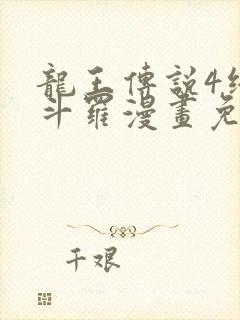 龍王傳說4終
斗羅漫畫免
千艰